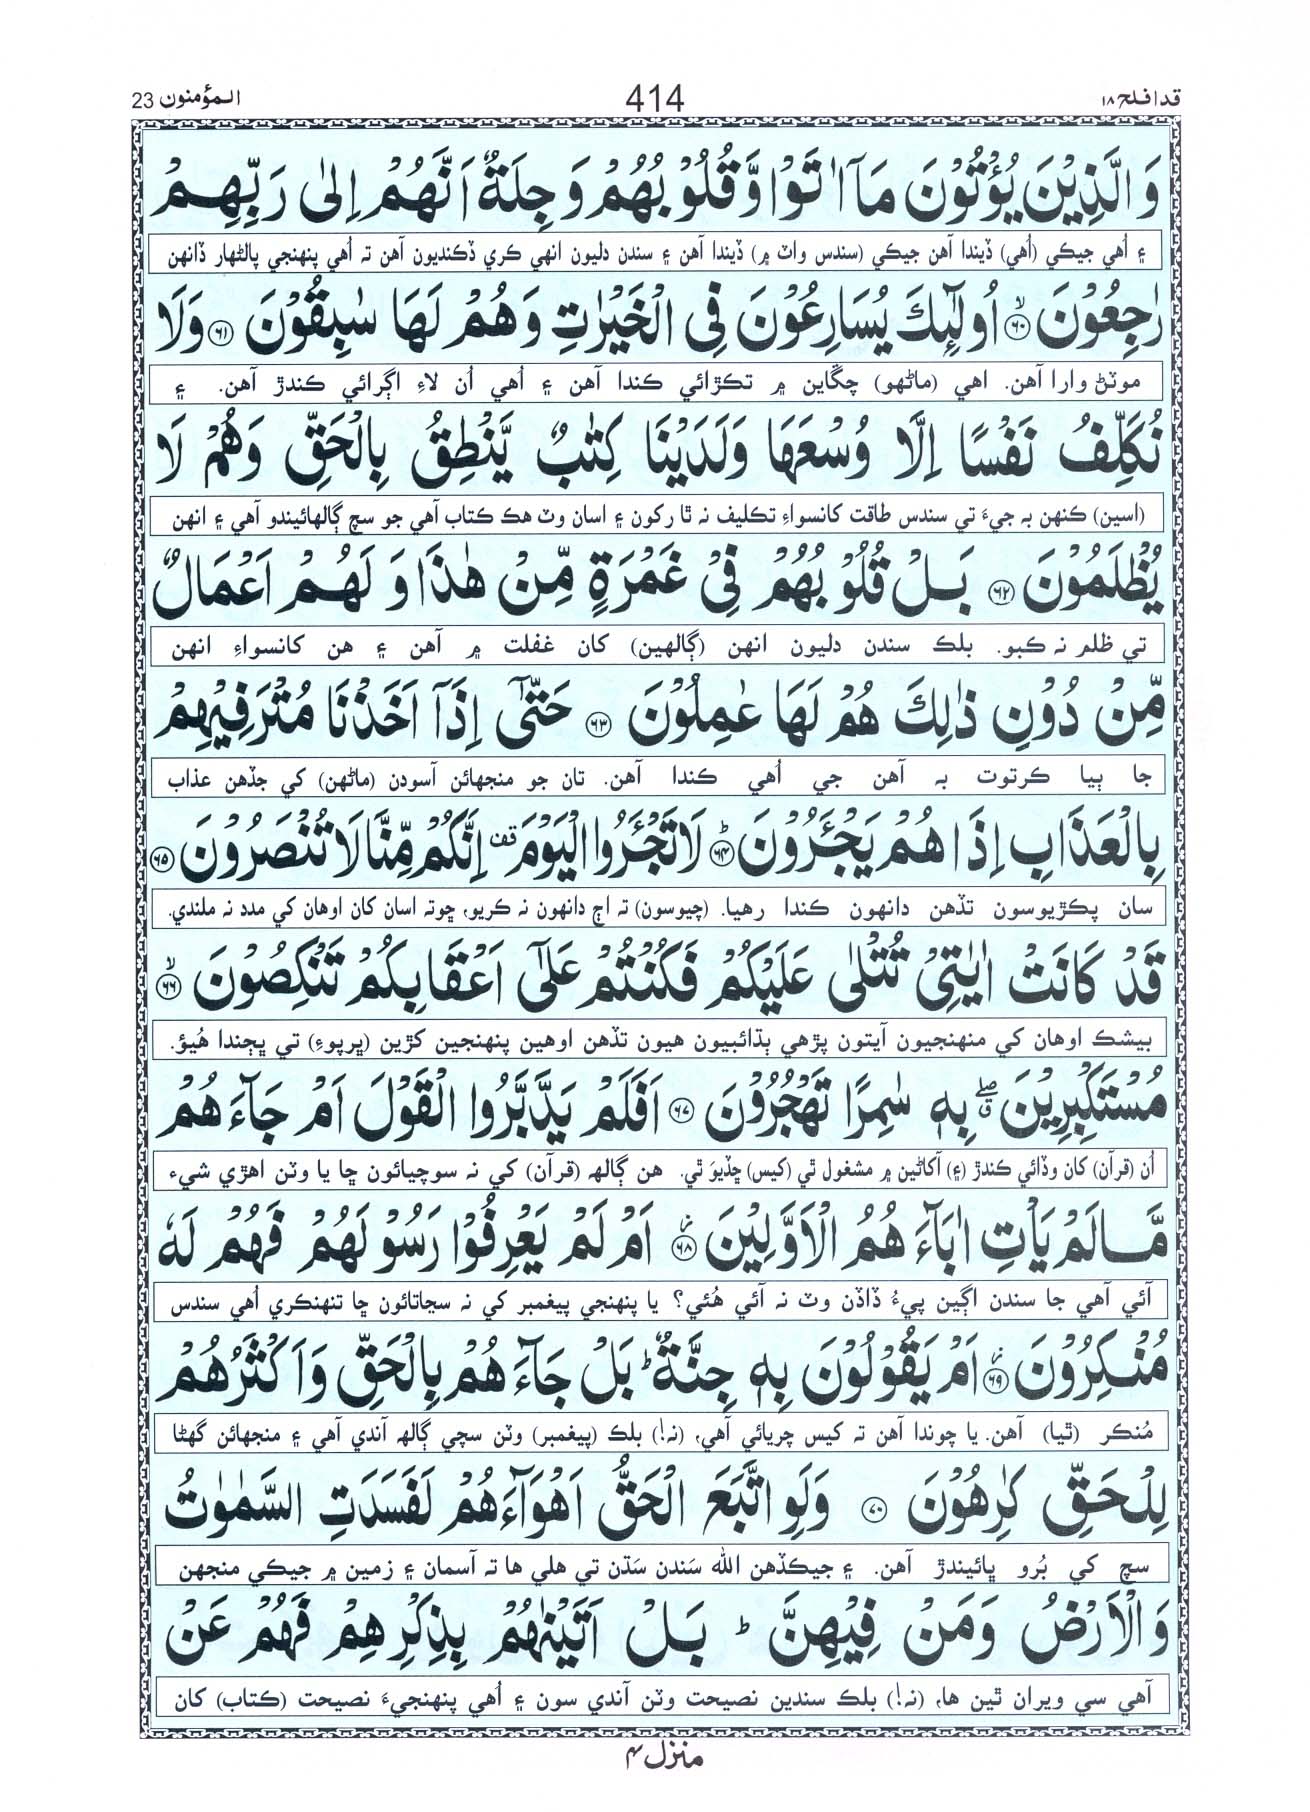 قدافلح ۱۸
414
المؤمنون 23
وَالَّذِيْنَ يُؤْتُوْنَ مَاۤ اٰتَوْا وَّقُلُوْبُهُمْ وَجِلَةٌ اَنَّهُمْ اِلٰى رَبِّهِمْ
۽ اُهي جيڪي (اُهي) ڏيندا آهن جيڪي (سندس واٽ ۾) ڏيندا آهن ۽ سندن دليون انهي ڪري ڏڪنديون آهن تہ اُهي پنهنجي پالڻهار ڏانهن
رٰجِعُوْنَ ۙ﴿۶۰﴾ اُولٰٓئِكَ يُسَارِعُوْنَ فِى الْخَيْرٰتِ وَهُمْ لَهَا سٰبِقُوْنَ ﴿۶۱﴾ وَلَا
موٽڻ وارا آهن. اهي (ماڻهو) چڱاين ۾ تڪڙائي ڪندا آهن ۽ اُهي اُن لاءِ اڳرائي ڪندڙ آهن. ۽
نُكَلِّفُ نَفْسًا اِلَّا وُسْعَهَا وَلَدَيْنَا كِتٰبٌ يَّنْطِقُ بِالْحَقِّ وَهُمْ لَا
(اسين) ڪنهن بہ جيءَ تي سندس طاقت کانسواءِ تڪليف نہ ٿا رکون ۽ اسان وٽ هڪ ڪتاب آهي جو سچ ڳالهائيندو آهي ۽ انهن
يُظْلَمُوْنَ ﴿۶۲﴾ بَلْ قُلُوْبُهُمْ فِىْ غَمْرَةٍ مِّنْ هٰذَا وَلَهُمْ اَعْمَالٌ
تي ظلم نہ ڪبو. بلڪ سندن دليون انهن (ڳالهين) کان غفلت ۾ آهن ۽ هن کانسواءِ انهن
مِّنْ دُوْنِ ذٰلِكَ هُمْ لَهَا عٰمِلُوْنَ ﴿۶۳﴾ حَتّٰٓى اِذَاۤ اَخَذْنَا مُتْرَفِيْهِمْ
جا ٻيا ڪرتوت بہ آهن جي اُهي ڪندا آهن. تان جو منجهائن آسودن (ماڻهن) کي جڏهن عذاب
بِالْعَذَابِ اِذَا هُمْ يَجْـَٔرُوْنَ ؕ﴿۶۴﴾ لَا تَجْـَٔرُوا الْيَوْمَ ۫ اِنَّكُمْ مِّنَّا لَا تُنْصَرُوْنَ ﴿۶۵﴾
سان پڪڙيوسون تڏهن دانهون ڪندا رهيا. (چيوسون) تہ اڄ دانهون نہ ڪريو، ڇوتہ اسان کان اوهان کي مدد نہ ملندي.
قَدْ كَانَتْ اٰيٰتِىْ تُتْلٰى عَلَيْكُمْ فَكُنْتُمْ عَلٰٓى اَعْقَابِكُمْ تَنْكِصُوْنَ ۙ﴿۶۶﴾
بيشڪ اوهان کي منهنجيون آيتون پڙهي ٻڌائبيون هيون تڏهن اوهين پنهنجين کڙين (ڀرپوءِ) تي ڀڄندا هُيؤ.
مُسْتَكْبِرِيْنَ ۖۗ بِهٖ سٰمِرًا تَهْجُرُوْنَ ﴿۶۷﴾ اَفَلَمْ يَدَّبَّرُوا الْقَوْلَ اَمْ جَآءَهُمْ
اُن (قرآن) کان وڏائي ڪندڙ (۽) آکاڻين ۾ مشغول ٿي (کيس) ڇڏيوَ ٿي. هن ڳالهہ (قرآن) کي نہ سوچيائون ڇا يا وٽن اهڙي شيء
مَّا لَمْ يَاْتِ اٰبَآءَهُمُ الْاَوَّلِيْنَ ۫﴿۶۸﴾ اَمْ لَمْ يَعْرِفُوْا رَسُوْلَهُمْ فَهُمْ لَهٗ
آئي آهي جا سندن اڳين پيءُ ڏاڏن وٽ نہ آئي هُئي؟ يا پنهنجي پيغمبر کي نہ سڃاتائون ڇا تنهنڪري اُهي سندس
مُنْكِرُوْنَ ۫﴿۶۹﴾ اَمْ يَقُوْلُوْنَ بِهٖ جِنَّةٌ ؕ بَلْ جَآءَهُمْ بِالْحَقِّ وَاَكْثَرُهُمْ
مُنڪر (ٿيا) آهن. يا چوندا آهن تہ کيس چريائي آهي، (نہ!) بلڪ (پيغمبر) وٽن سچي ڳالهہ آندي آهي ۽ منجهائن گهڻا
لِلْحَقِّ كٰرِهُوْنَ ﴿۷۰﴾ وَلَوِ اتَّبَعَ الْحَقُّ اَهْوَآءَهُمْ لَفَسَدَتِ السَّمٰوٰتُ
سچ کي بُرو ڀائيندڙ آهن. ۽ جيڪڏهن الله سَندن سَڌن تي هلي ها تہ آسمان ۽ زمين ۾ جيڪي منجهن
وَالْاَرْضُ وَمَنْ فِيْهِنَّ ؕ بَلْ اَتَيْنٰهُمْ بِذِكْرِهِمْ فَهُمْ عَنْ
آهي سي ويران ٿين ها، (نہ!) بلڪ سندين نصيحت وٽن آندي سون ۽ اُهي پنهنجيءَ نصيحت (ڪتاب) کان
منزل ۴